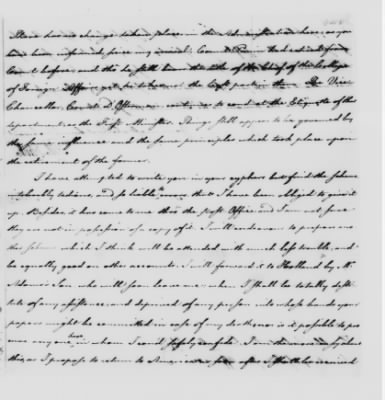 There has no change taken place in the Administration here, as you
have been informed, since my arrival; Count Panin had retired from
Court before, and tho' he still bears the title of the Chief of the College
of Foreign Affairs yet he takes not the least part in them. The Vice
Chancellor, Count d'Osterman, continues to conduct the Etiquette of this
department as the first Minister. Things still appear to be governed by
the same influence and the same principles which took place upon
the retirement of the former.
I have attempted to write you in your cyphers but find the scheme
intolerably tedious, and so liable to errors, that I have been obliged to give it
up. Besides, it has come to me thro' the post Office, and I am not sure
they are not in possession of a copy of it. I will endeavour to prepare ano
ther scheme which I think will be attended with much less trouble, and
be equally good on other accounts. I will forward it to Holland by Mr.
Adams's Son who will soon leave me: when I shall be totally desti
tute of any assistance, and deprived of any person into whose hands your
papers might be committed in case of my death, nor is it possible to pro
cure any one here in whom I could safely confide. I am the more easy about
this, as I propose to return to America as soon after I shall have received